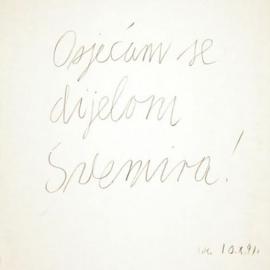 Osjećam se
dijelom
Svemira!
10.X.91.